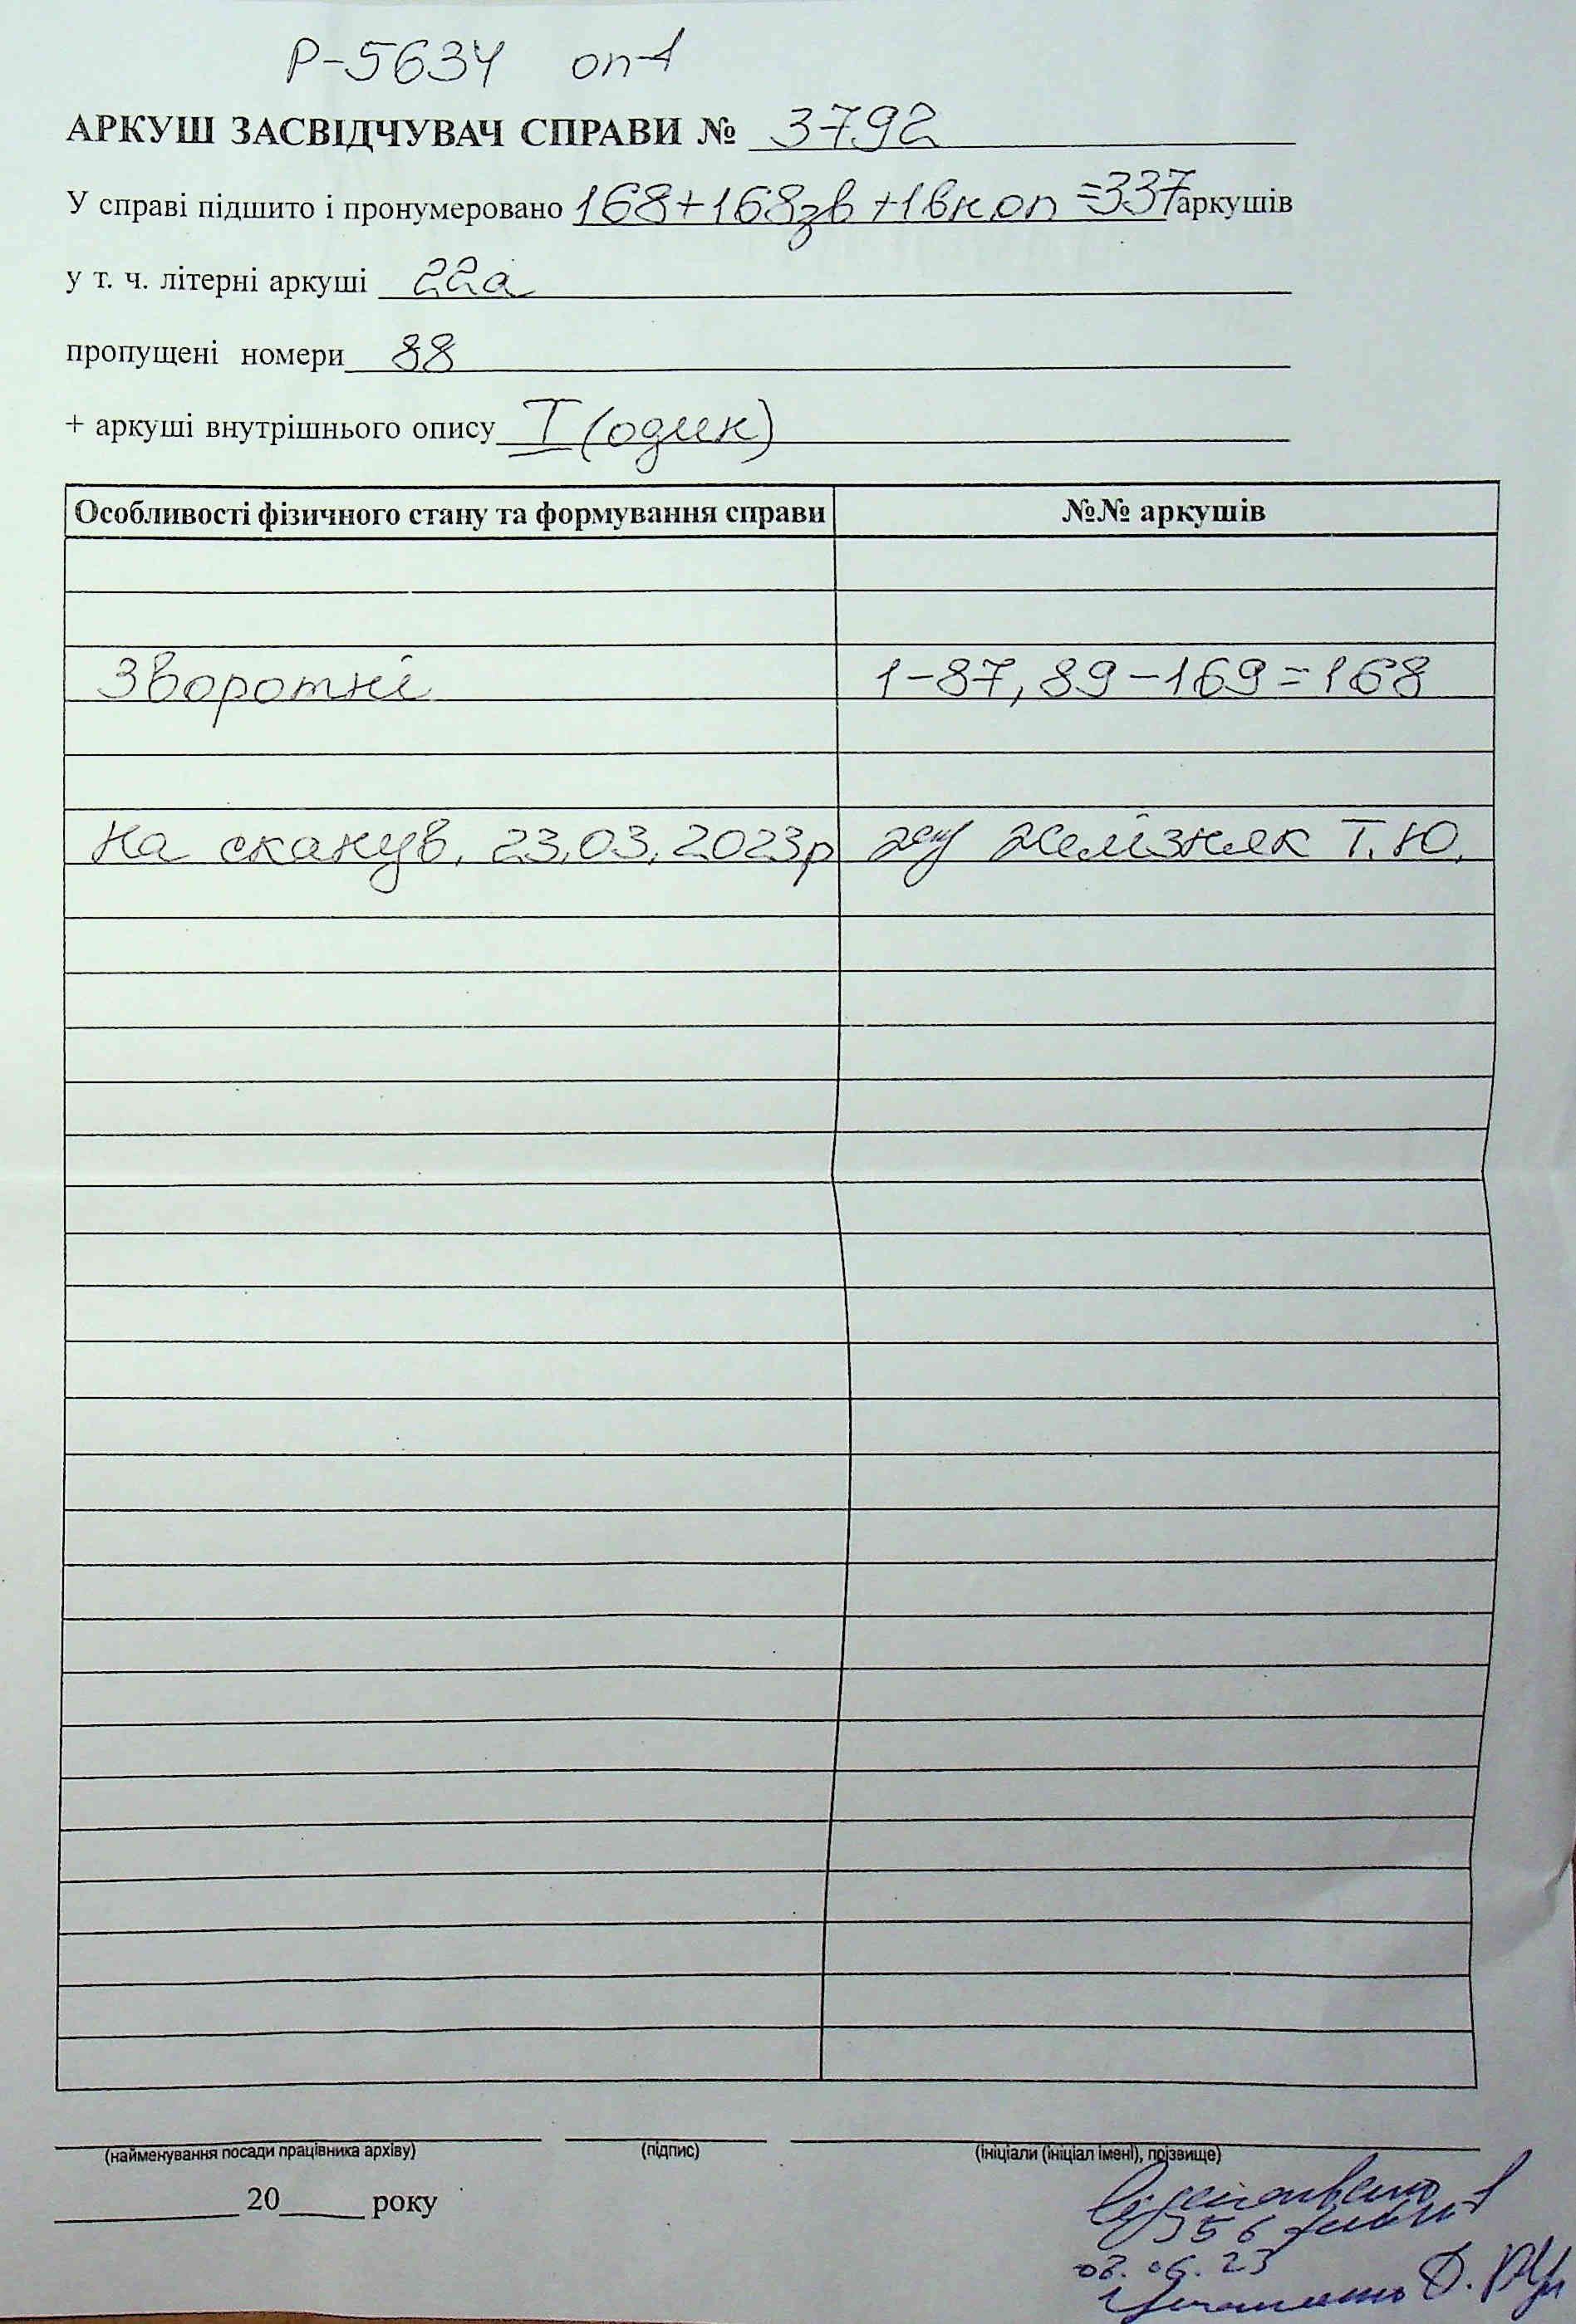 Р-5634 оп-1
АРКУШ ЗАСВІДЧУВАЧ СПРАВИ № 3792
У справі підшито і пронумеровано 168+168зв+1вн оп =337 аркушів
у т. ч. літерні аркуші 22а
пропущені номери 88
+ аркуші внутрішнього опису I (один)
Особливості фізичного стану та формування справи №№ аркушів
Зворотні 1-87, 89-169=168
На сканув. 23.03.2023р Желізняк Т.Ю.
(найменування посади працівника архіву) (підпис) (ініціали (ініціал імені), прізвище)
20 року
23